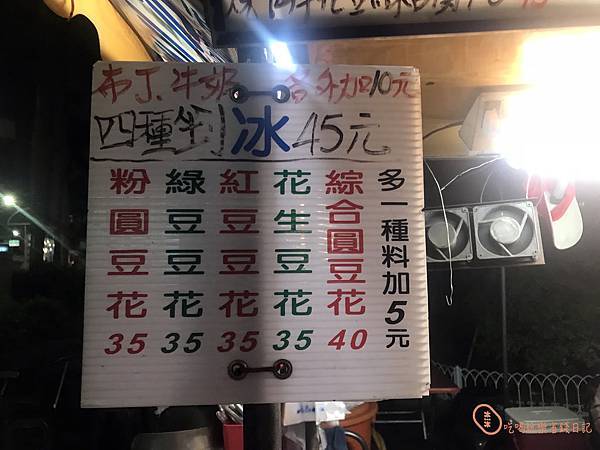 布丁、牛奶 各加10元
四種剉冰45元
粉圓豆花35
綠豆豆花35
紅豆豆花35
花生豆花35
綜合圓豆花40
多一種料加5元